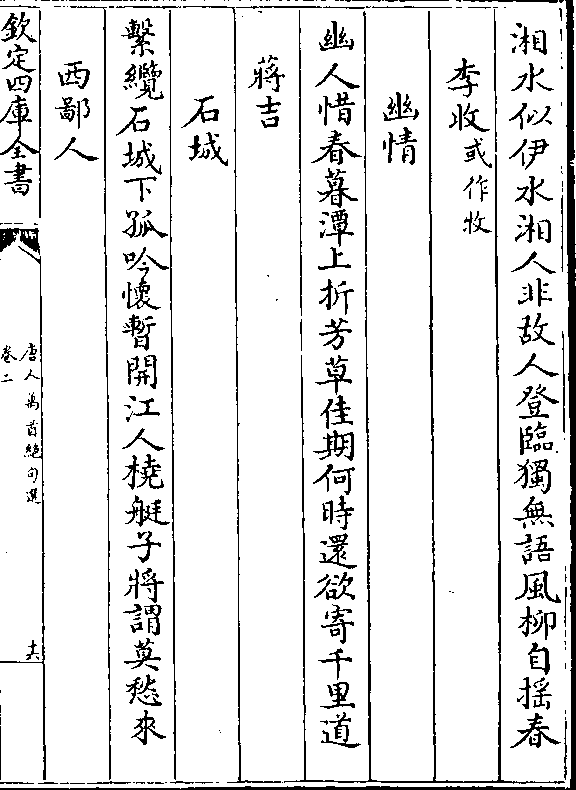 湘水似伊水湘人非故人登臨獨無語風柳自揺春
李收或作牧
幽情
幽人惜春暮潭上折芳草佳期何時還欲寄千里道
蔣吉
石城
繫纜石城下孤吟懷暫開江人橈艇子將謂莫愁來
西鄙人
欽定四庫全書
唐人萬首絶句選
卷二
十六